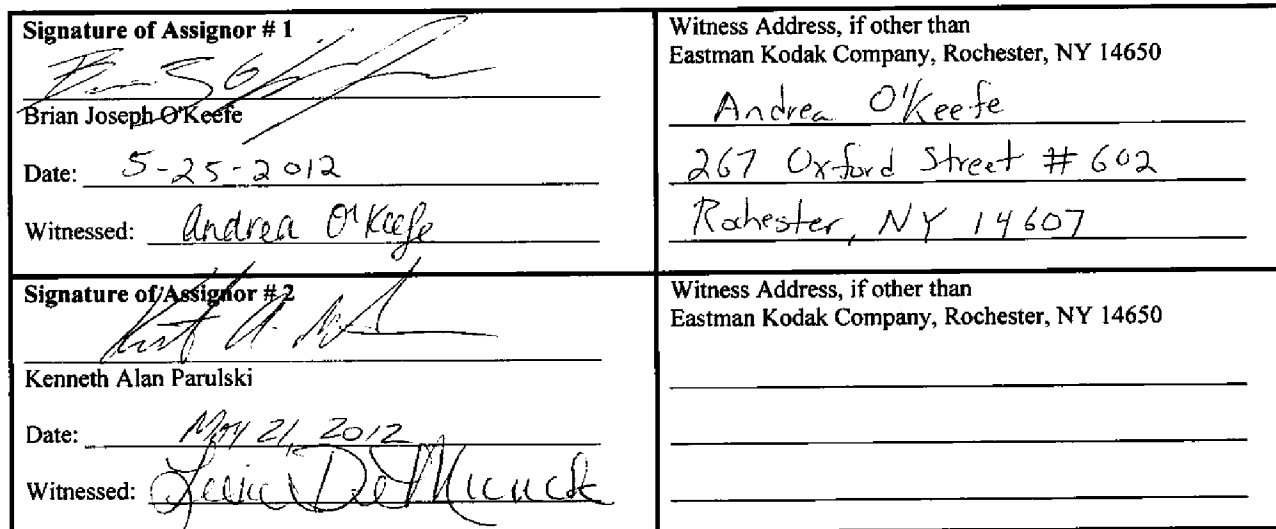 Signature of Assignor # 1
Brian Joseph O'Keefe
Date: 5-25-2012
Witnessed: Andrea O'Keefe
Witness Address, if other than
Eastman Kodak Company, Rochester, NY 14650
Andrea O'Keefe
267 Oxford Street # 602
Rochester, NY 14607
Signature of Assignor # 2
Kenneth Alan Parulski
Date: May 21, 2012
Witnessed:
Witness Address, if other than
Eastman Kodak Company, Rochester, NY 14650